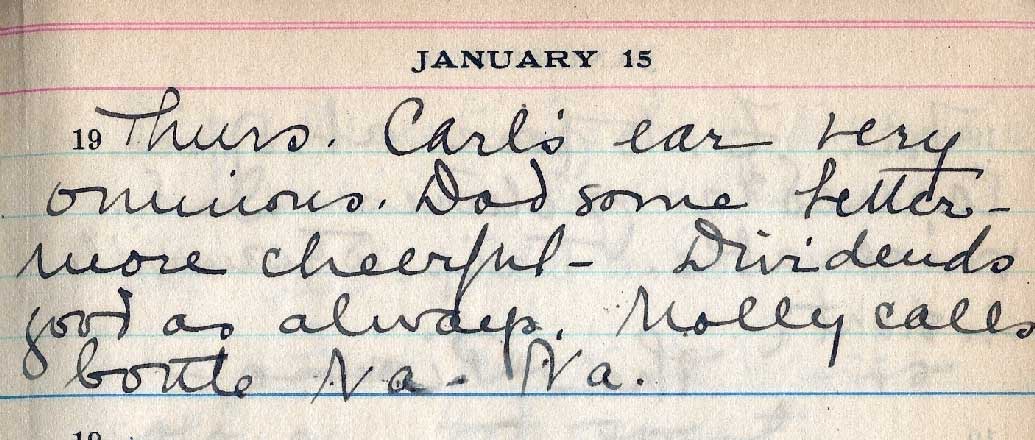 JANUARY 15
19 Thurs. Carl's ear very
ominous. Dad some better -
more cheerful - Dividends
good as always. Molly calls
bottle Na - Na.
19